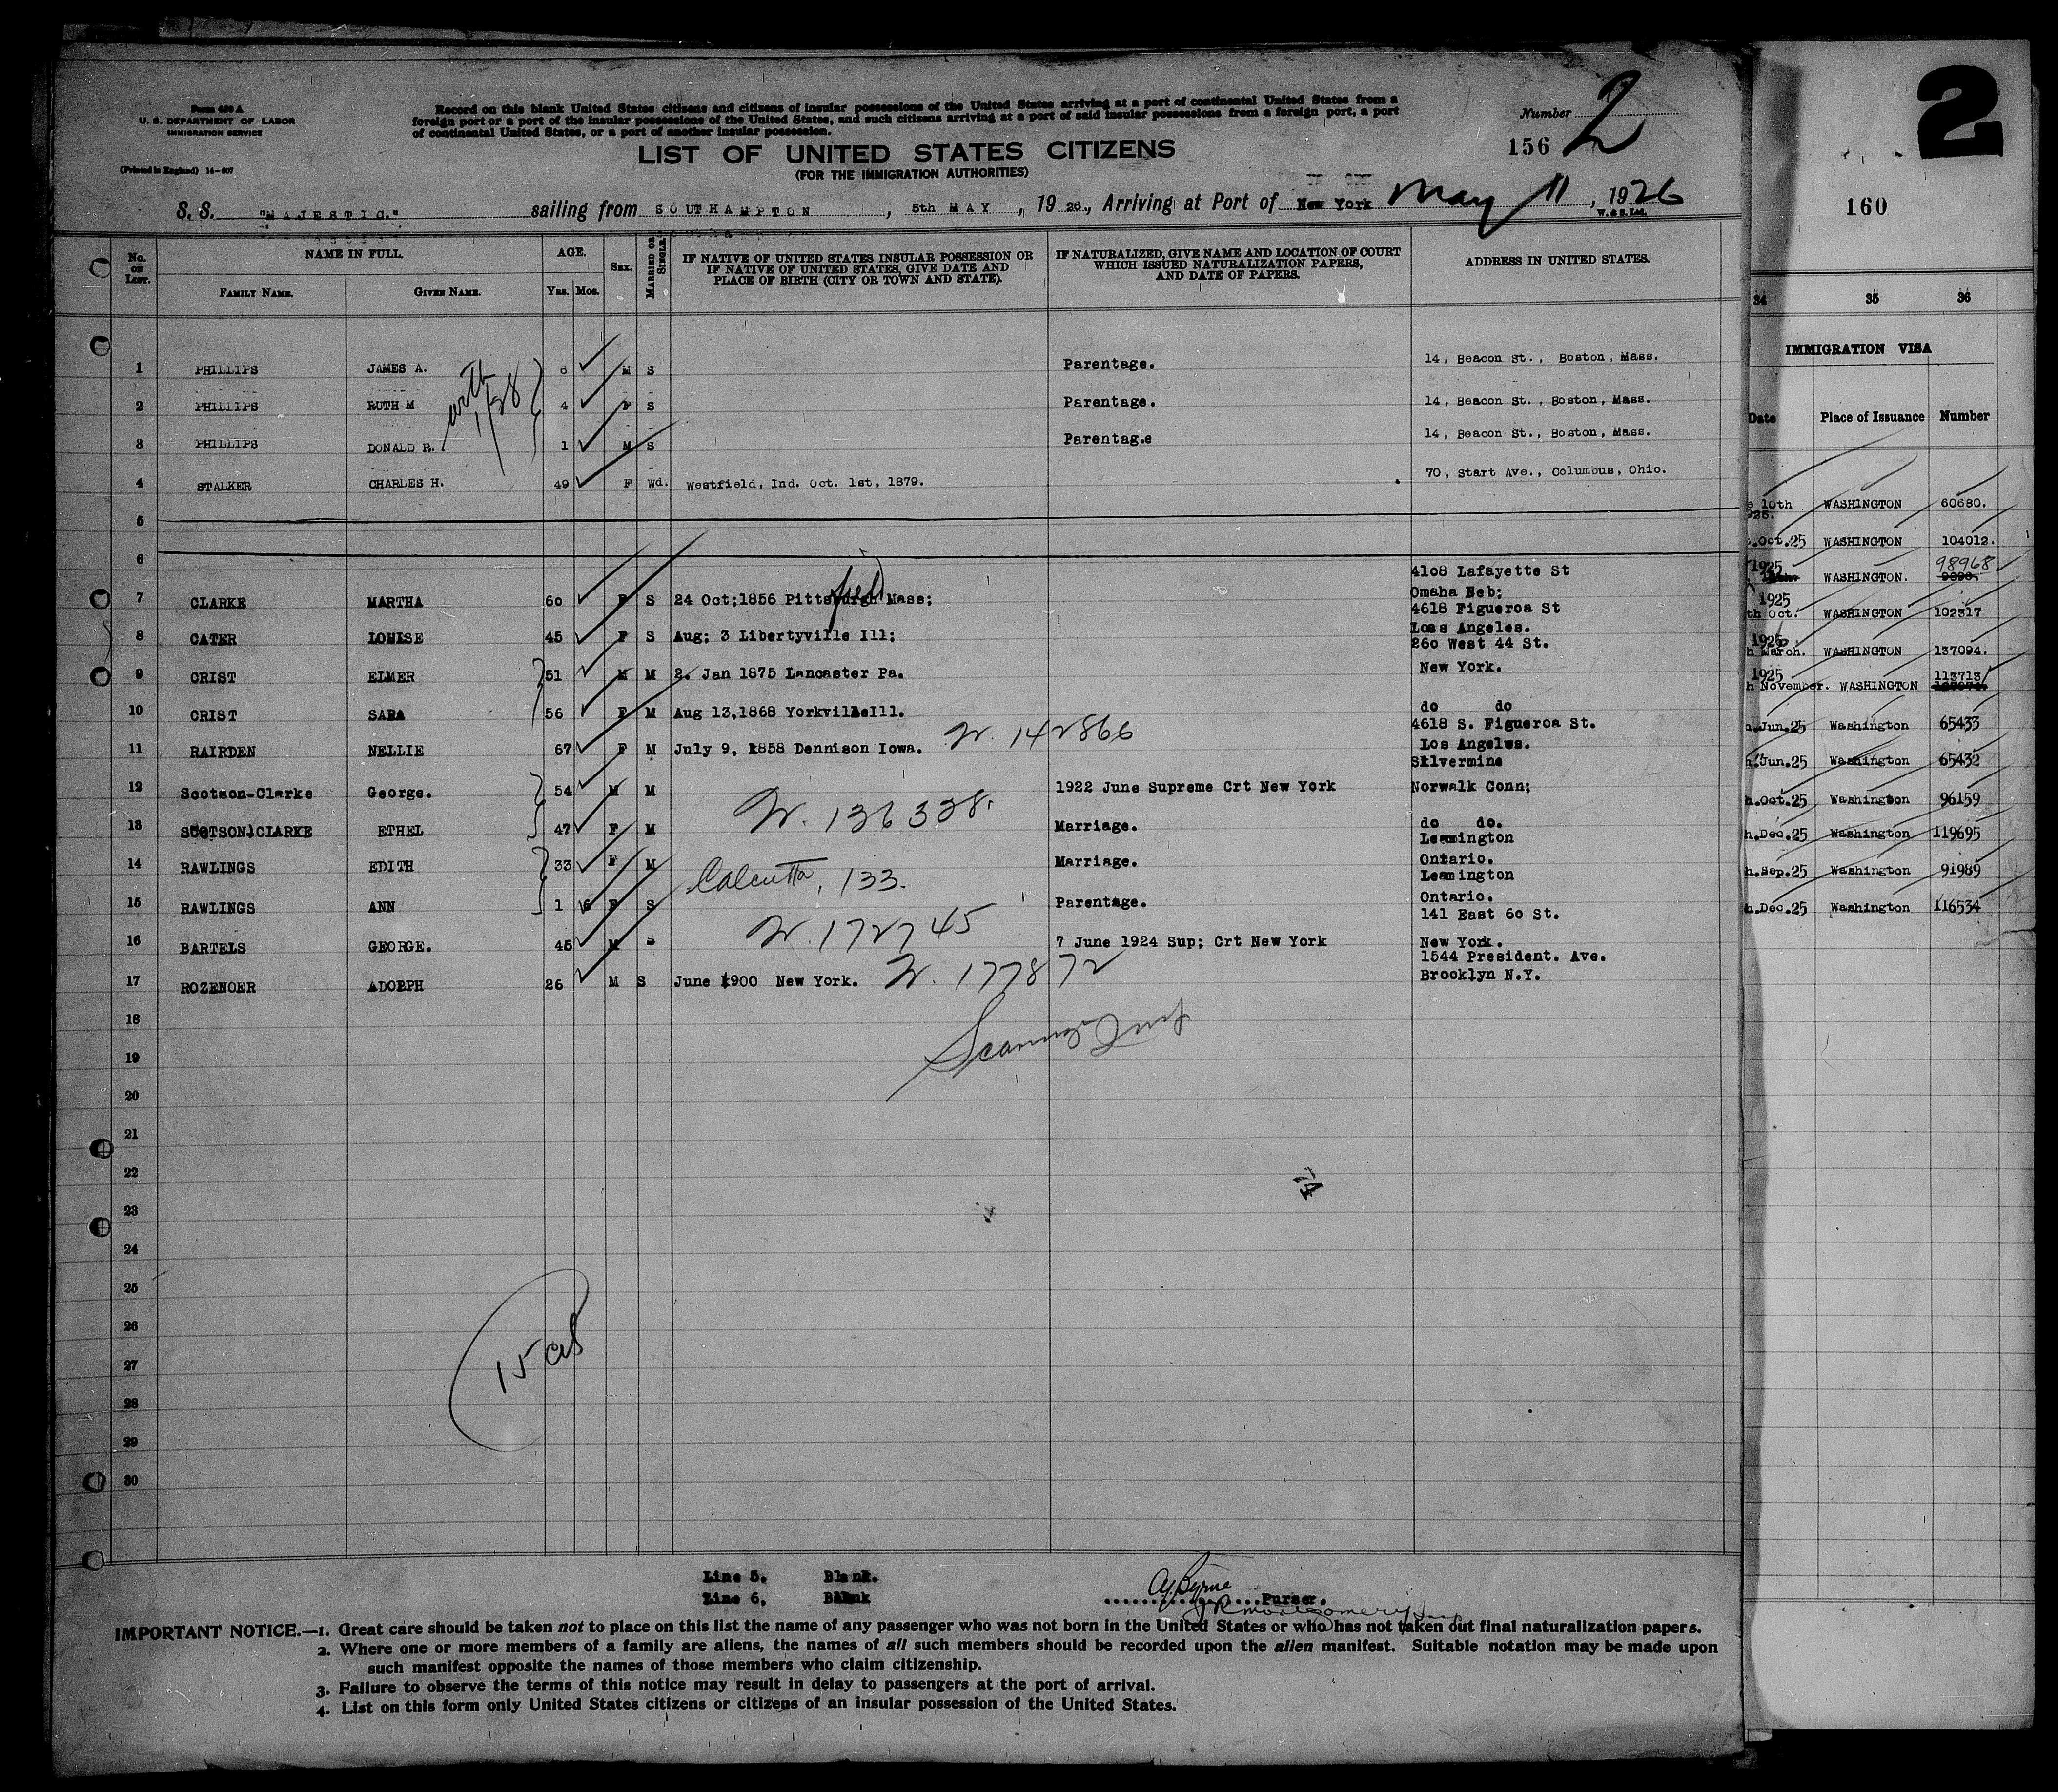 Form 630 A
U. S. DEPARTMENT OF LABOR
IMMIGRATION SERVICE
(Printed in England) 14-607
Record on this blank United States citizens and citizens of insular possessions of the United States arriving at a port of continental United States from a
foreign port or a port of the insular possessions of the United States, and such citizens arriving at a port of said insular possessions from a foreign port, a port
of continental United States, or a port of another insular possession.
LIST OF UNITED STATES CITIZENS
(FOR THE IMMIGRATION AUTHORITIES)
Number 2
156
S. S. "MAJESTIC." sailing from SOUTHAMPTON, 5th MAY, 1926., Arriving at Port of New York May 11, 1926
W. & S. Ltd.
No. ON LIST. NAME IN FULL. AGE. SEX. MARRIED OR SINGLE. IF NATIVE OF UNITED STATES INSULAR POSSESSION OR IF NATIVE OF UNITED STATES, GIVE DATE AND PLACE OF BIRTH (CITY OR TOWN AND STATE). IF NATURALIZED, GIVE NAME AND LOCATION OF COURT WHICH ISSUED NATURALIZATION PAPERS, AND DATE OF PAPERS. ADDRESS IN UNITED STATES.
FAMILY NAME. GIVEN NAME. Yrs. Mos.
1 PHILLIPS JAMES A. 6 M S Parentage. 14, Beacon St., Boston, Mass.
2 PHILLIPS RUTH M 4 F S Parentage. 14, Beacon St., Boston, Mass.
with
1/28
3 PHILLIPS DONALD R. 1 M S Parentage 14, Beacon St., Boston, Mass.
4 STALKER CHARLES H. 49 F Wd. Westfield, Ind. Oct. 1st, 1879. 70, Start Ave., Columbus, Ohio.
5
6
7 CLARKE MARTHA 60 F S 24 Oct;1856 Pittsburgh field Mass; 4108 Lafayette St
Omaha Neb;
8 CATER LOUISE 45 F S Aug; 3 Libertyville Ill; 4618 Figueroa St
Loss Angeles.
9 CRIST ELMER 51 M M 2. Jan 1875 Lancaster Pa. 260 West 44 St.
New York.
10 CRIST SARA 56 F M Aug 13,1868 YorkvilleIll. do do
11 RAIRDEN NELLIE 67 F M July 9, 1858 Dennison Iowa. W. 142866 4618 S. Figueroa St.
Los Angelws.
12 Scotson-Clarke George. 54 M M 1922 June Supreme Crt New York Silvermine
Norwalk Conn;
W. 136338.
13 SCOTSON CLARKE ETHEL 47 F M Marriage. do do.
14 RAWLINGS EDITH 33 F M Marriage. Leamington
Ontario.
Calcutta, 133.
15 RAWLINGS ANN 1 6 F S Parentage. Leamington
Ontario.
W. 172745
16 BARTELS GEORGE. 45 M 7 June 1924 Sup; Crt New York 141 East 60 St.
New York.
17 ROZENOER ADOLPH 26 M S June 1900 New York. W. 177872 1544 President. Ave.
Brooklyn N.Y.
18
19
20
21
22
23
24
25
26
27
28
29
30
74
Line 5. Blank.
Line 6. Blank
A. Byrne Purser.
J R Montgomery
IMPORTANT NOTICE.—1. Great care should be taken not to place on this list the name of any passenger who was not born in the United States or who has not taken out final naturalization papers.
2. Where one or more members of a family are aliens, the names of all such members should be recorded upon the alien manifest. Suitable notation may be made upon
such manifest opposite the names of those members who claim citizenship.
3. Failure to observe the terms of this notice may result in delay to passengers at the port of arrival.
4. List on this form only United States citizens or citizens of an insular possession of the United States.
2
160
34 35 36
IMMIGRATION VISA
Date Place of Issuance Number
10th WASHINGTON 60680.
Oct.25 WASHINGTON 104012.
1925 WASHINGTON. 98968
1925
th Oct. WASHINGTON 102317
1925
h March. WASHINGTON 137094.
1925
h November. WASHINGTON 113713
Jun.25 Washington 65433
Jun.25 Washington 65432
Oct.25 Washington 96159
h.Dec.25 Washington 119695
h.Sep.25 Washington 91989
h.Dec.25 Washington 116534